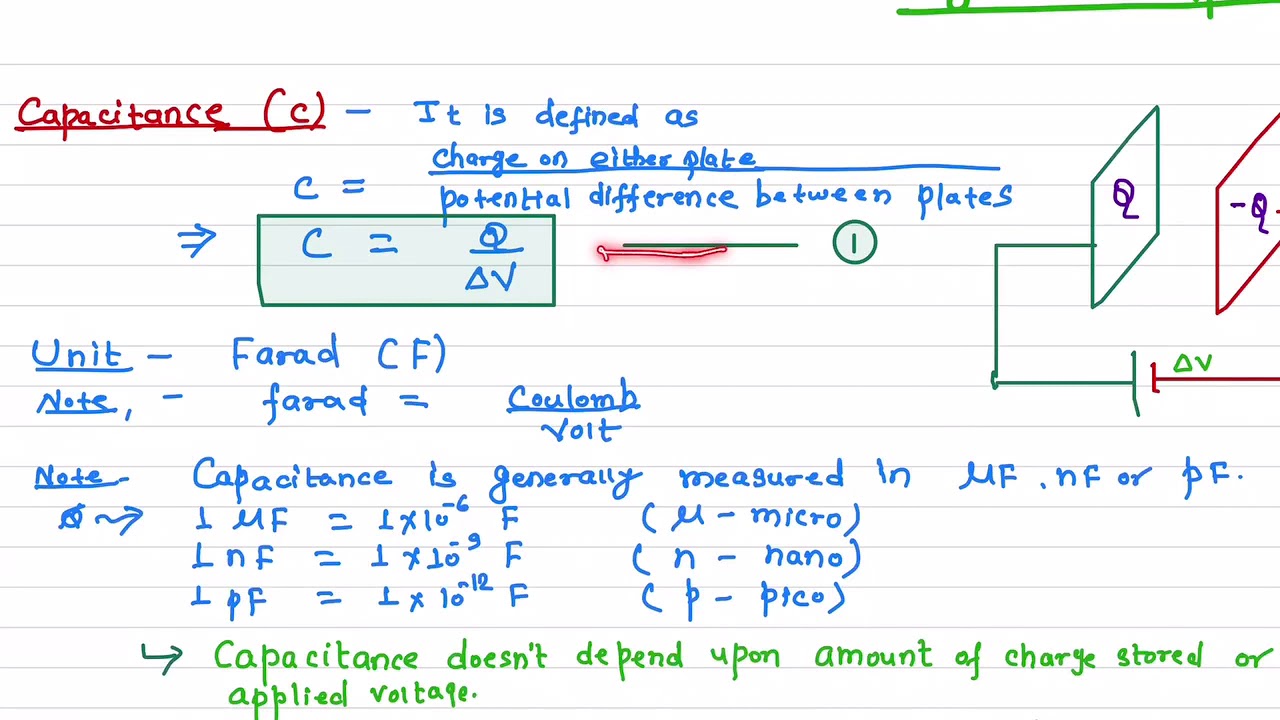 Capacitance (C) - It is defined as
C = Charge on either plate
potential difference between plates
⇒ C = Q
ΔV
①
Q
-Q
ΔV
Unit - Farad (F)
Note, - farad = Coulomb
Volt
Note - Capacitance is generally measured in μF, nF or pF.
1 μF = 1×10⁻⁶ F (μ - micro)
1 nF = 1×10⁻⁹ F (n - nano)
1 pF = 1×10⁻¹² F (p - pico)
↳ Capacitance doesn't depend upon amount of charge stored or
applied voltage.